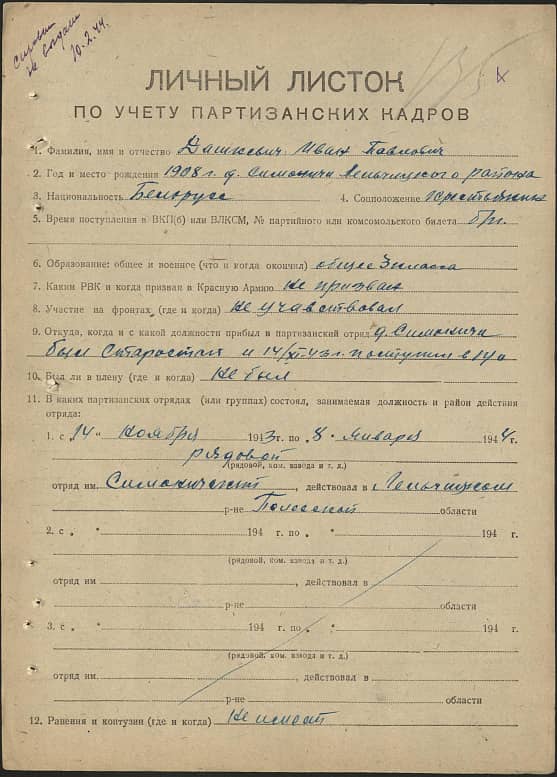 Справки
не выдали
10.2.44.
ЛИЧНЫЙ ЛИСТОК
ПО УЧЕТУ ПАРТИЗАНСКИХ КАДРОВ
1. Фамилия, имя и отчество Дашкевич Иван Павлович
2. Год и место рождения 1908 г. д. Симоничи Лельчицкого района
3. Национальность Белорусс 4. Соцположение Крестьянин
5. Время поступления в ВКП(б) или ВЛКСМ, № партийного или комсомольского билета б/п.
6. Образование: общее и военное (что и когда окончил) общее 3 класса
7. Каким РВК и когда призван в Красную Армию не призван
8. Участие на фронтах (где и когда) не учавствовал
9. Откуда, когда и с какой должности прибыл в партизанский отряд д. Симоничи
был Старостой и 14/XI-43 г. поступил в п/о
10. Был ли в плену (где и когда) не был
11. В каких партизанских отрядах (или группах) состоял, занимаемая должность и район действия
отряда:
1. с „14" ноября 1943 г. по „8" января 1944 г.
рядовой
(рядовой, ком. взвода и т. д.)
отряд им. Симоничский, действовал в Лельчицком
р-не Полесской области
2. с „ " 194 г. по „ " 194 г.
(рядовой, ком. взвода и т. д.)
отряд им , действовал в
р-не области
3. с „ " 194 г. по „ " 194 г.
(рядовой, ком. взвода и т. д.)
отряд им. , действовал в
р-не области
12. Ранения и контузии (где и когда) не имеет